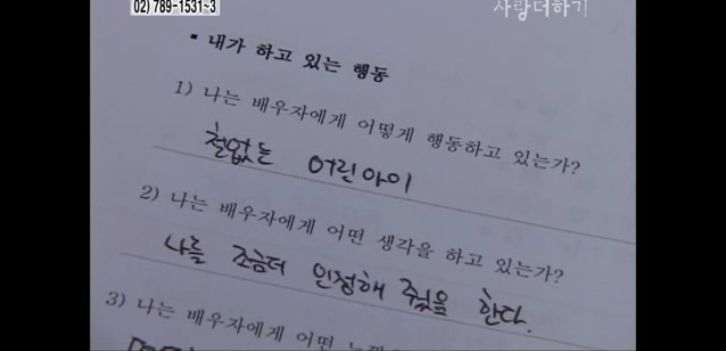 02) 789-1531~3
사랑더하기
▪ 내가 하고 있는 행동
1) 나는 배우자에게 어떻게 행동하고 있는가?
철없는 어린아이
2) 나는 배우자에게 어떤 생각을 하고 있는가?
나를 조금더 인정해 줬음 한다.
3) 나는 배우자에게 어떤